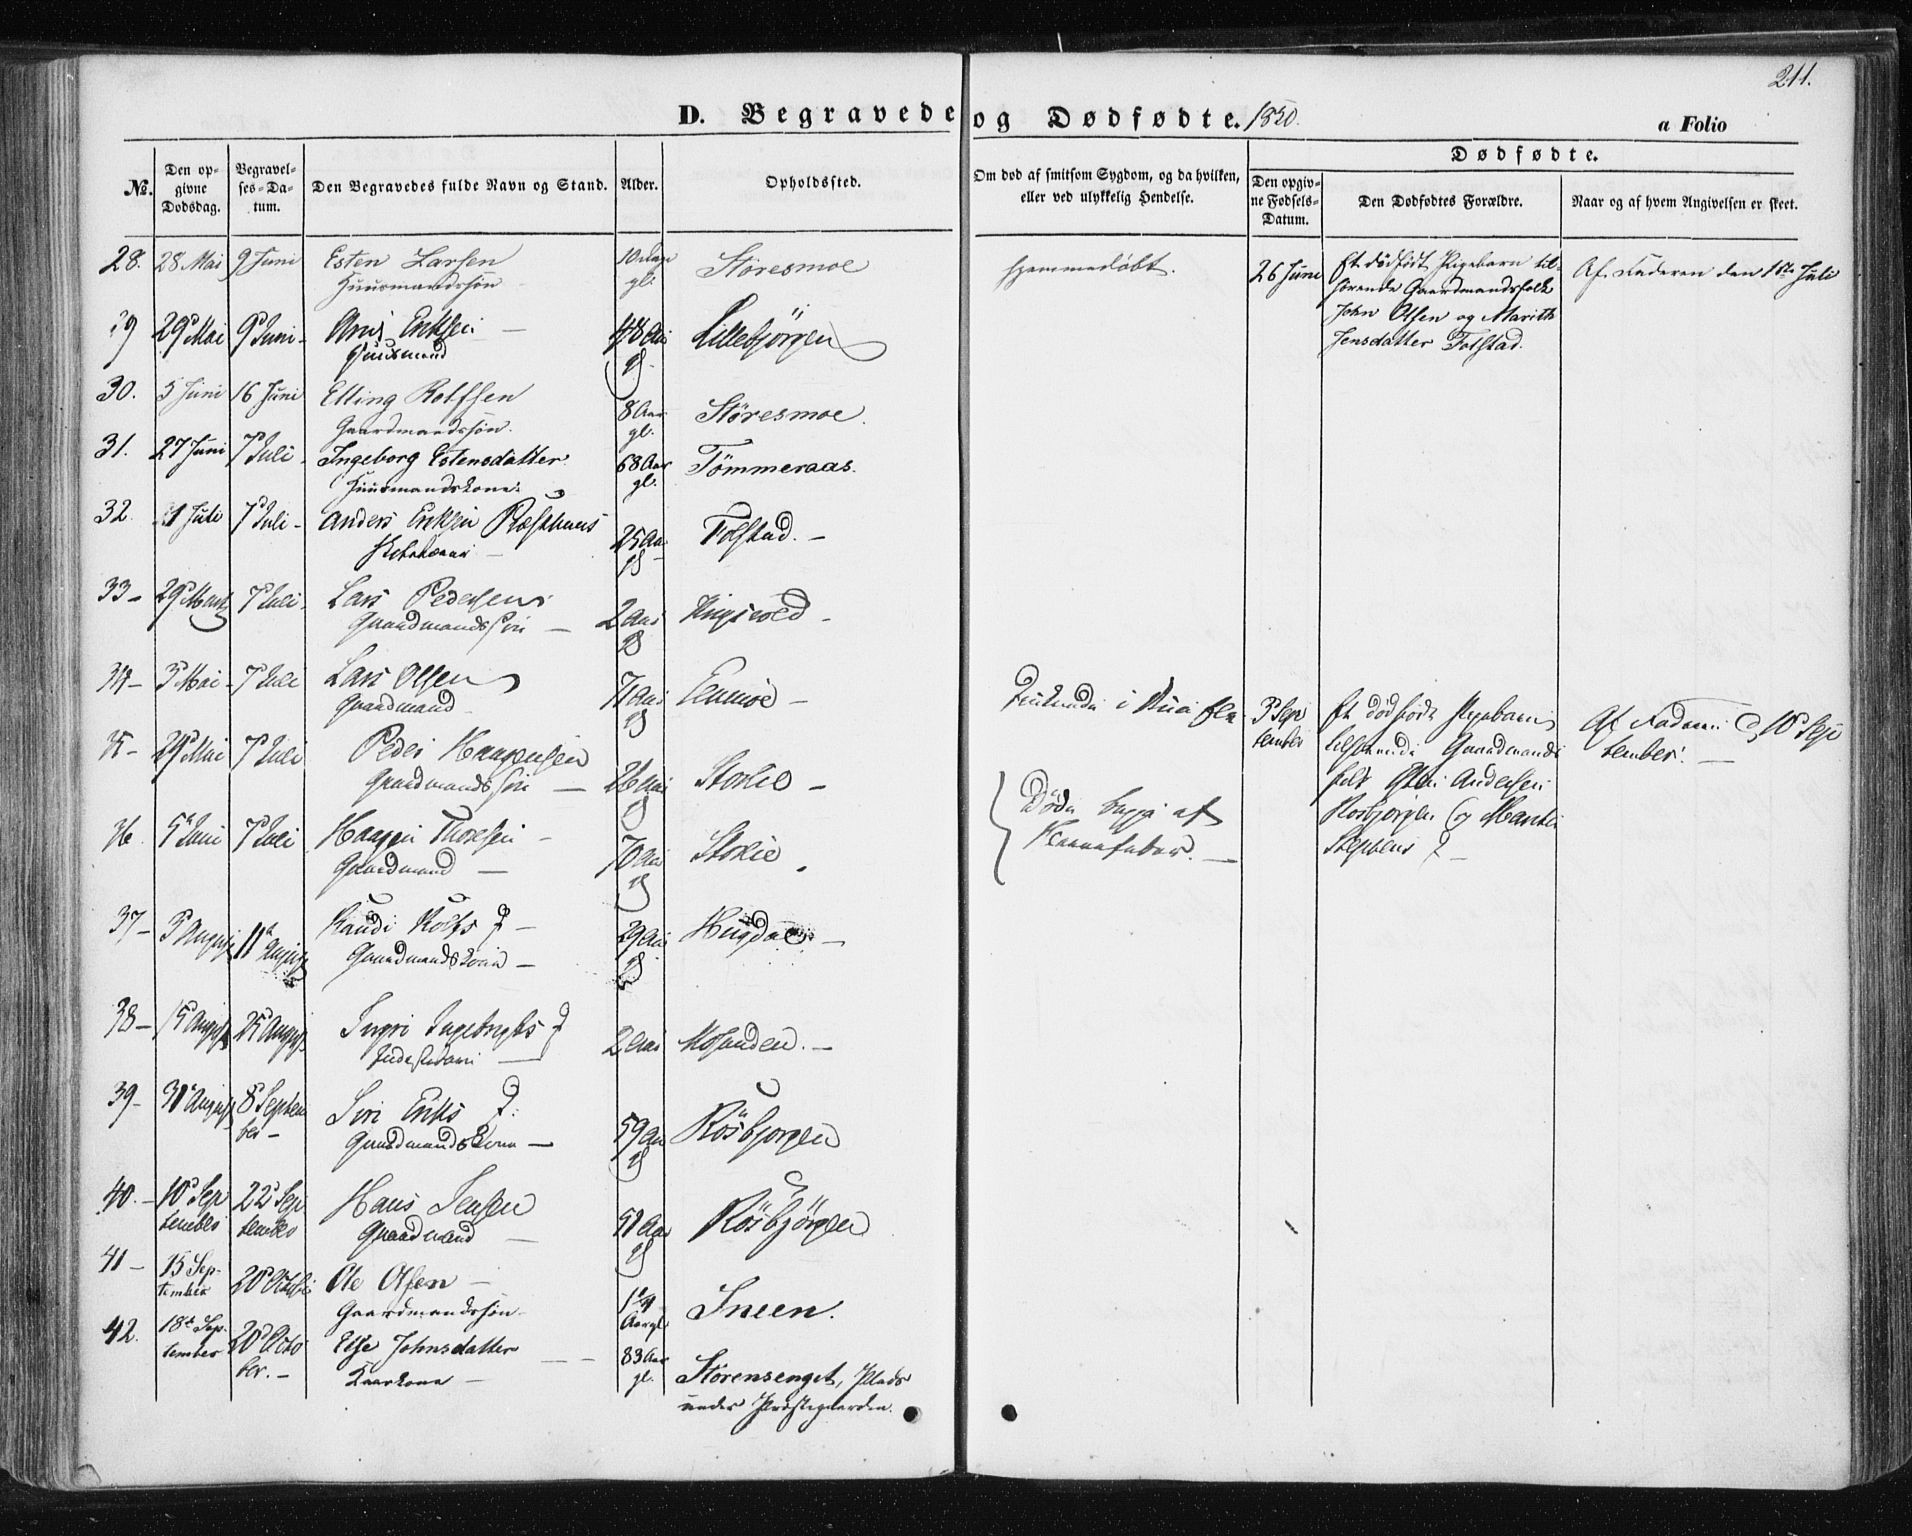 211.
D. Begravede og Dødfødte. 1850.
a Folio
No.
Den opgivne Dødsdag.
Begravelses-Datum.
Den Begravedes fulde Navn og Stand.
Alder.
Opholdssted.
Om død af smitsom Sygdom, og da hvilken, eller ved ulykkelig Hendelse.
Dødfødte.
Den opgivne Fødsels-Datum.
Den Dødfødtes Forældre.
Naar og af hvem Angivelsen er skeet.
28. 28 Mai 9 Juni Esten Larsen 10 Dage Støresmoe hjemmedøbt.
Huusmandssøn gl.
26 Juni Et dødfødt Pigebarn til- Af Faderen den 1ste Juli
hørende Gaardmandsfolk
John Olsen og Marith
Jensdatter Folstad.
29 Mai 9 Juni Eriksen 48 Aar Lillebjørgen
Huusmand gl.
30. 5 Juni 16 Juni Elling Rolfsen 8 Aar Støresmoe.
Gaardmandssøn. gl.
31. 27 Juni 7 Juli Ingeborg Estensdatter 68 Aar Tømmeraas.
Huusmandskone gl.
32. 1 Juli 7 Juli Anders Eriksen Præsthuus 25 Aar Folstad.
gl.
33 29 Marts 7 Juli Lars Pedersen 2 Aar
Gaardmandssøn gl.
34 3 Mai 7 Juli Lars Olsen 71 Aar
Gaardmand gl.
3 September Et dødfødt Pigebarn Af Faderen d 10 September.
tilhørende Gaardmands
folk Andersen
Rosbjørgen og Marith
35 29 Mai 7 Juli Peder Haagensen 26 Aar Storlie
Gaardmandssøn gl.
Døde begge af
36. 5 Juni 7 Juli Haagen Thoresen 70 Aar Storlie
Gaardmand gl.
37 3 August 11 August Randi Rolfs D 29 Aar Hugdal
Gaardmandskone gl.
38 15 August 25 August Ingri Ingebrigts D 2 Aar Mosanden.
39 31 August 8 September Siri Eriks D: 59 Aar Rösbjorgen
Gaardmandskone gl.
40. 10 September 22 September Hans Jensen 51 Aar Rösbjörgen
Gaardmand gl.
41 15 September 20 October Ole Olsen Aar gl. Sneen.
Gaardmandssøn
42. 18de September 20 October. Else Johnsdatter 83 Aar gl. Størensenget, Plads
Kaarkone under Præstegaarden.